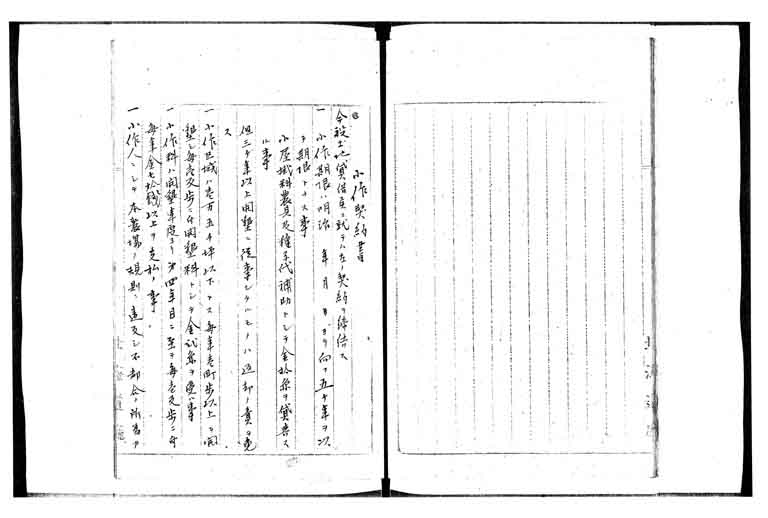 小作契約書
今般土地貸借貞ニ就テハ左ノ契約ヲ締結ス
一 小作期限ハ明治 年 月 ヨリ向フ五ヶ年ヲ以
テ期限トナス事
小屋掛料農具及種子代補助トシテ金拾円ヲ貸与ス
ル事
但三ヶ年以上開墾ニ従事シタルモノハ返却ノ責ヲ免
ス
一 小作区域ハ壱万五千坪以下トス毎年壱町歩以上ヲ開
墾シ毎壱反歩ニ付開墾料トシテ金弐円ヲ受ル事
一 小作料ハ開墾年度ヨリ第四年目ニ至ヲ毎壱反歩ニ付
毎年金七拾銭以上ヲ支払ノ事
一 小作人ニシテ本農場ノ規則ニ違反シ不都合ノ所為ア
北海道庁